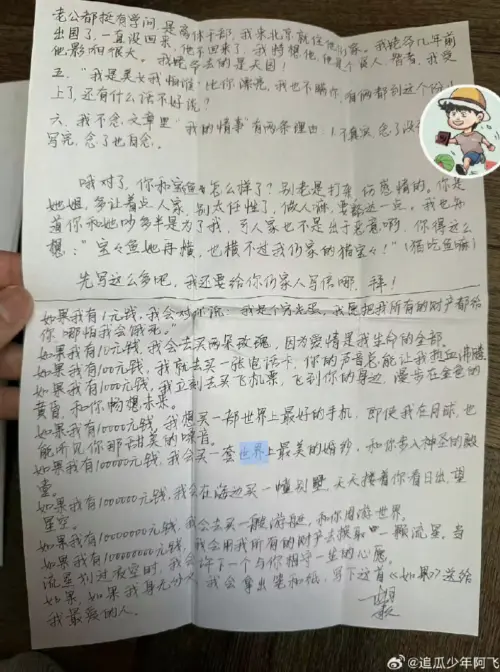 老公都挺有学问,是离休干部,我来北京就住他们家。我姥爷几年前
出国了,一直没回来,他不回来了,我特想他,他是个诗人、智者,我受
他影响很大。我姥爷去的是天国!
五、"我是美女我怕谁!比你漂亮,我也不瞒你,咱俩都到这个份儿
上了,还有什么话不好说?
六、我不念,文章里"我的情事"有两条理由:1.不真实,念了没
写完,念了也白念。
哦对了,你和宝鱼怎么样了?别老是打来,伤感情的。你是
她姐,多让着点人家,别太任性了,做人嘛,要豁达一点。我也知
道你和她吵多半是为了我,可人家也不是出于恶意啊,你得这么
想:"宝々鱼她再横,也横不过我们家的猫宝々!"(猫吃鱼嘛)
先写这么多吧,我还要给你们家人写信哪,拜!
如果我有1元钱,我会对你说:"我是个穷光蛋,我愿把我所有的财产都给
你,哪怕我会饿死。"
如果我有10元钱,我会去买两朵玫瑰,因为爱情是我生命的全部。
如果我有100元钱,我就去买一张电话卡,你的声音总能让我热血沸腾
如果我有1000元钱,我立刻去买飞机票,飞到你的身边,漫步在金色的
黄昏,和你畅想未来。
如果我有10000元钱,我想买一部世界上最好的手机,即使我在月球,也
能听见你那甜美的嗓音。
如果我有100000元钱,我会买一套世界上最美的婚纱,和你步入神圣的殿
堂。
如果我有1000000元钱,我会在海边买一幢别墅,天天搂着你看日出,望
星空。
如果我有10000000元钱,我会去买一艘游艇,和你周游世界。
如果我有100000000元钱,我会用我所有的财产去换取一颗流星,当
流星划过夜空时,我会许下一个与你相守一生的心愿。
如果,如果我身无分文,我会拿出笔和纸,写下这首《如果》送给
我最爱的人。
@追瓜少年阿飞